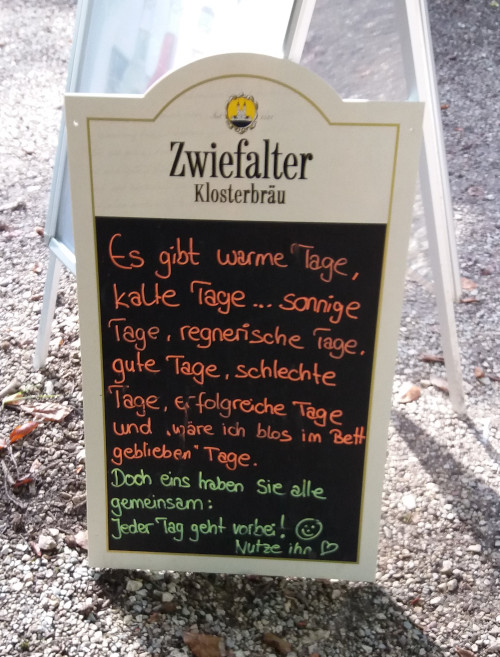 Zwiefalter
Klosterbräu
Es gibt warme Tage,
kalte Tage... sonnige
Tage, regnerische Tage,
gute Tage, schlechte
Tage, erfolgreiche Tage
und „wäre ich blos im Bett
geblieben" Tage.
Doch eins haben Sie alle
gemeinsam:
Jeder Tag geht vorbei! ☺
Nutze ihn ♡